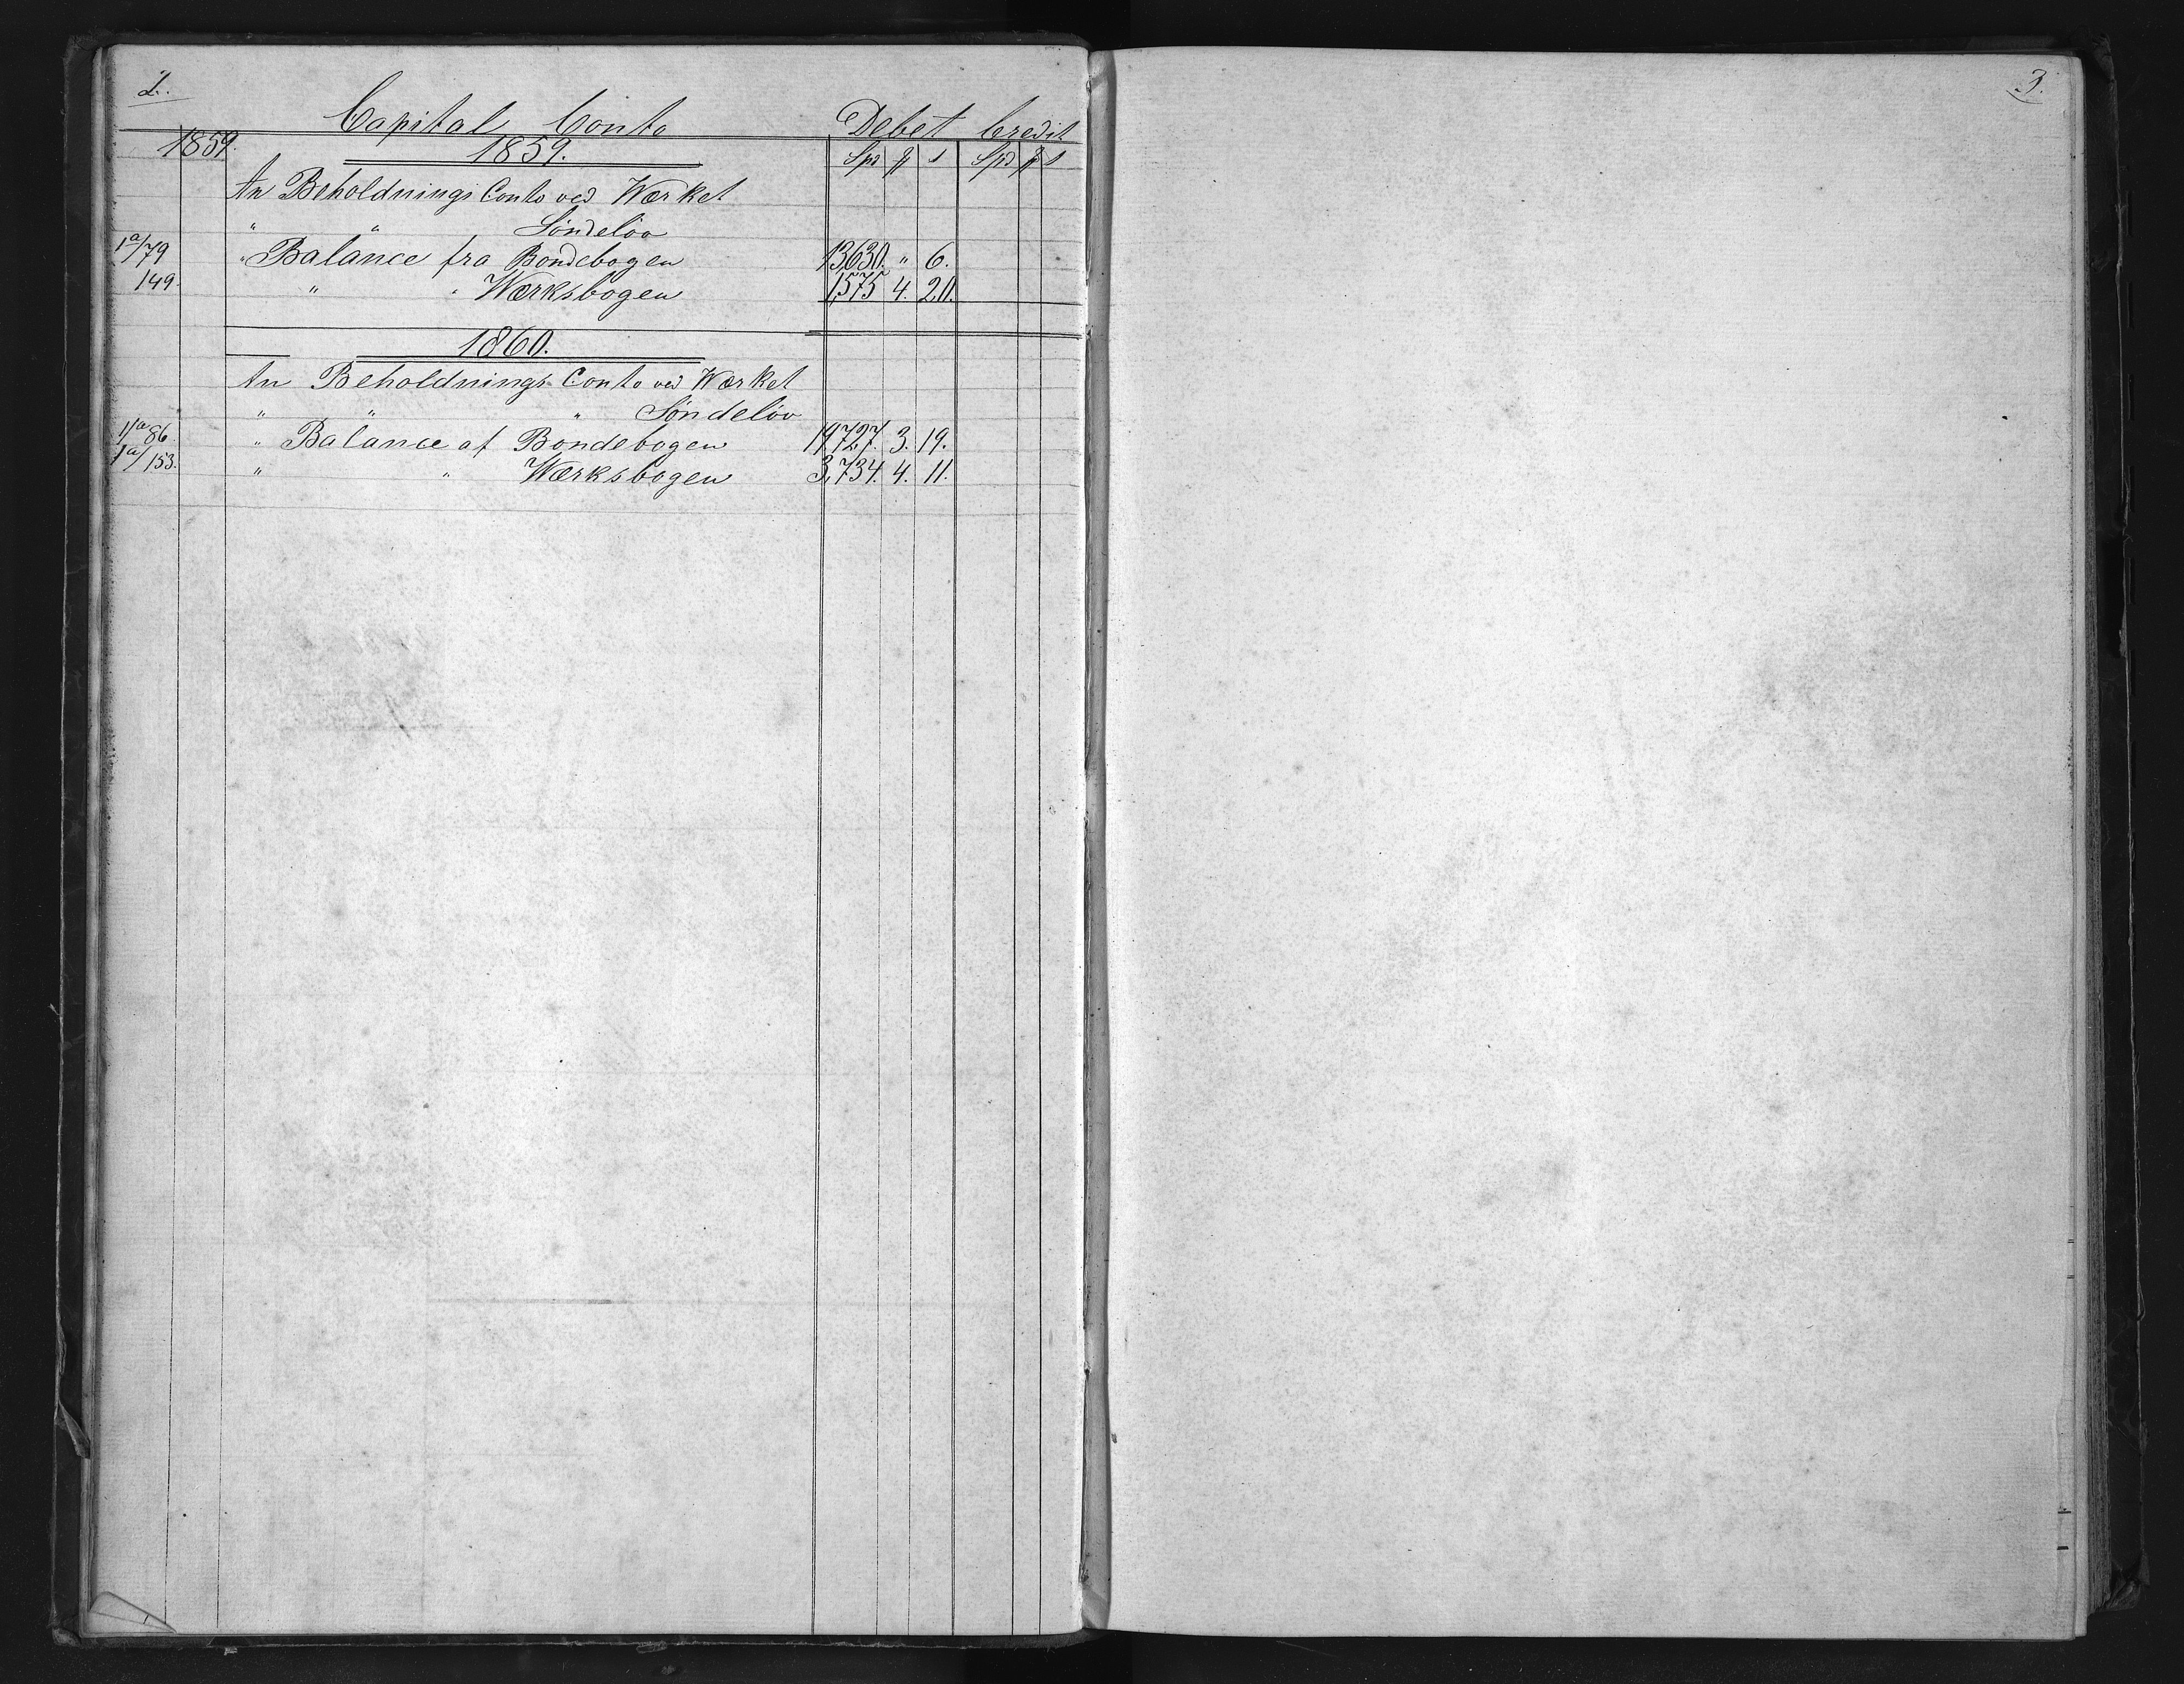 2.
Capital Conto Debet Credit
1859. 1859. Spd s Spd s
An Beholdnings Conto ved Værket
" " Söndelöv
1a/79 " Balance fra Bondebogen 13,630. " 6.
149. " " Værksbogen 1,575 4. 20.
1860.
An Beholdnings Conto ved Værket
" " " Søndeløv
1a/86. " Balance af Bondebogen 19,727. 3. 19.
1a/153. " " Værksbogen 3,734. 4. 11.
3.